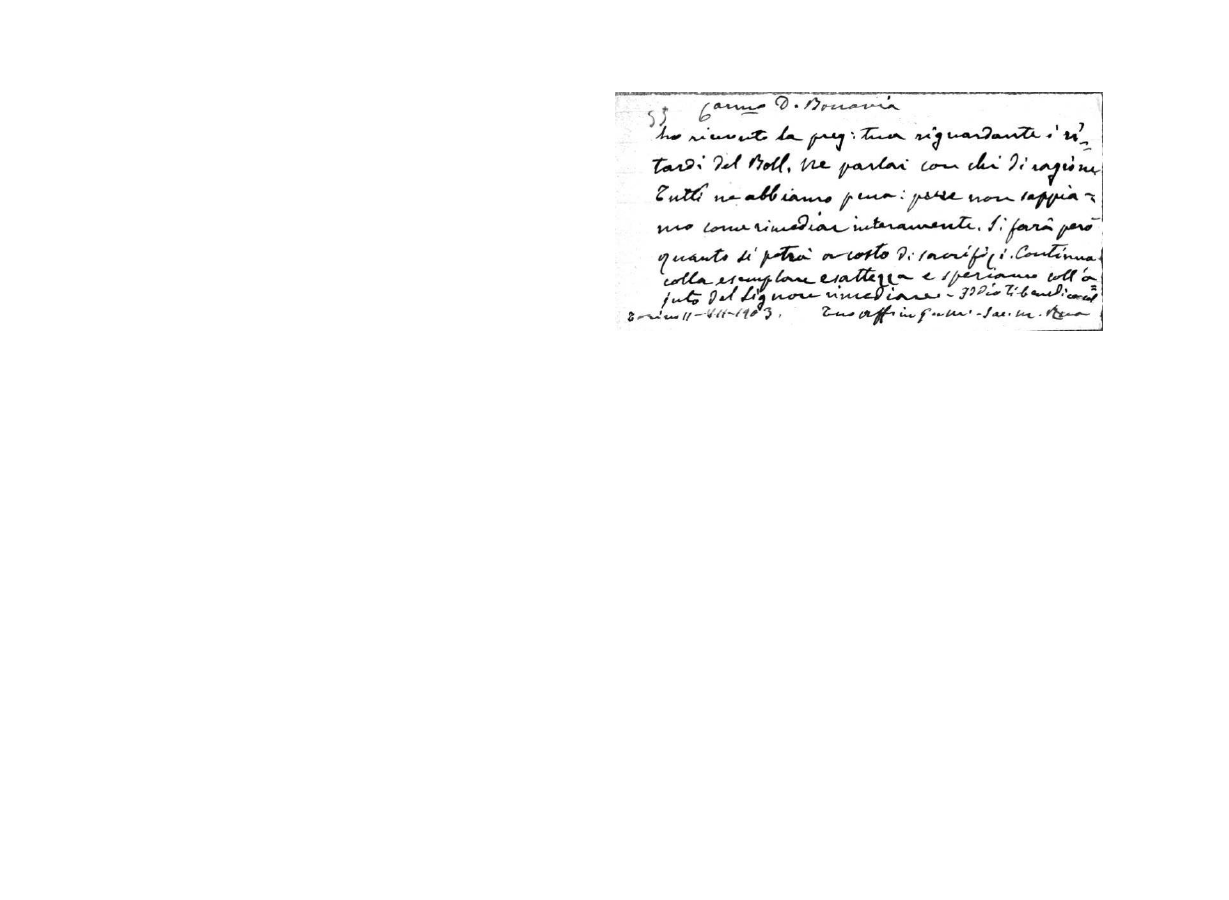 55 Carmo D. Bonavia
ho ricevuto la preg: tua riguardante i ri-
tardi del Boll. Ne parlai con chi di ragione
Tutti ne abbiamo pena: non sappia-
mo come rimediar interamente. Si farà però
quanto si potrà a costo di sacrifizi. Continua
colla esemplare esattezza e speriamo coll'a
juto del Signore rimediare - Iddio ti benedica
Torino 11-VII-1903. Tuo aff in G. e M. - Sac. M. Rua